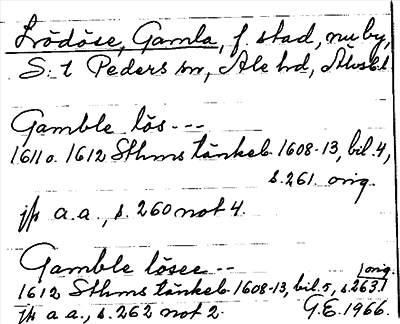 Lödöse, Gamla, f. stad, nu by,
S:t Peders sn, Ale hd, Älvsb l
Gamble lös---
1611 o. 1612 Sthms tänkeb. 1608-13, bil. 4,
s. 261. orig.
jfr a.a., s. 260 not 4.
Gamble lösee--
orig.
1612 Sthms tänkeb 1608-13, bil. 5, s. 263.
jfr a.a., s. 262 not 2. G.E. 1966.